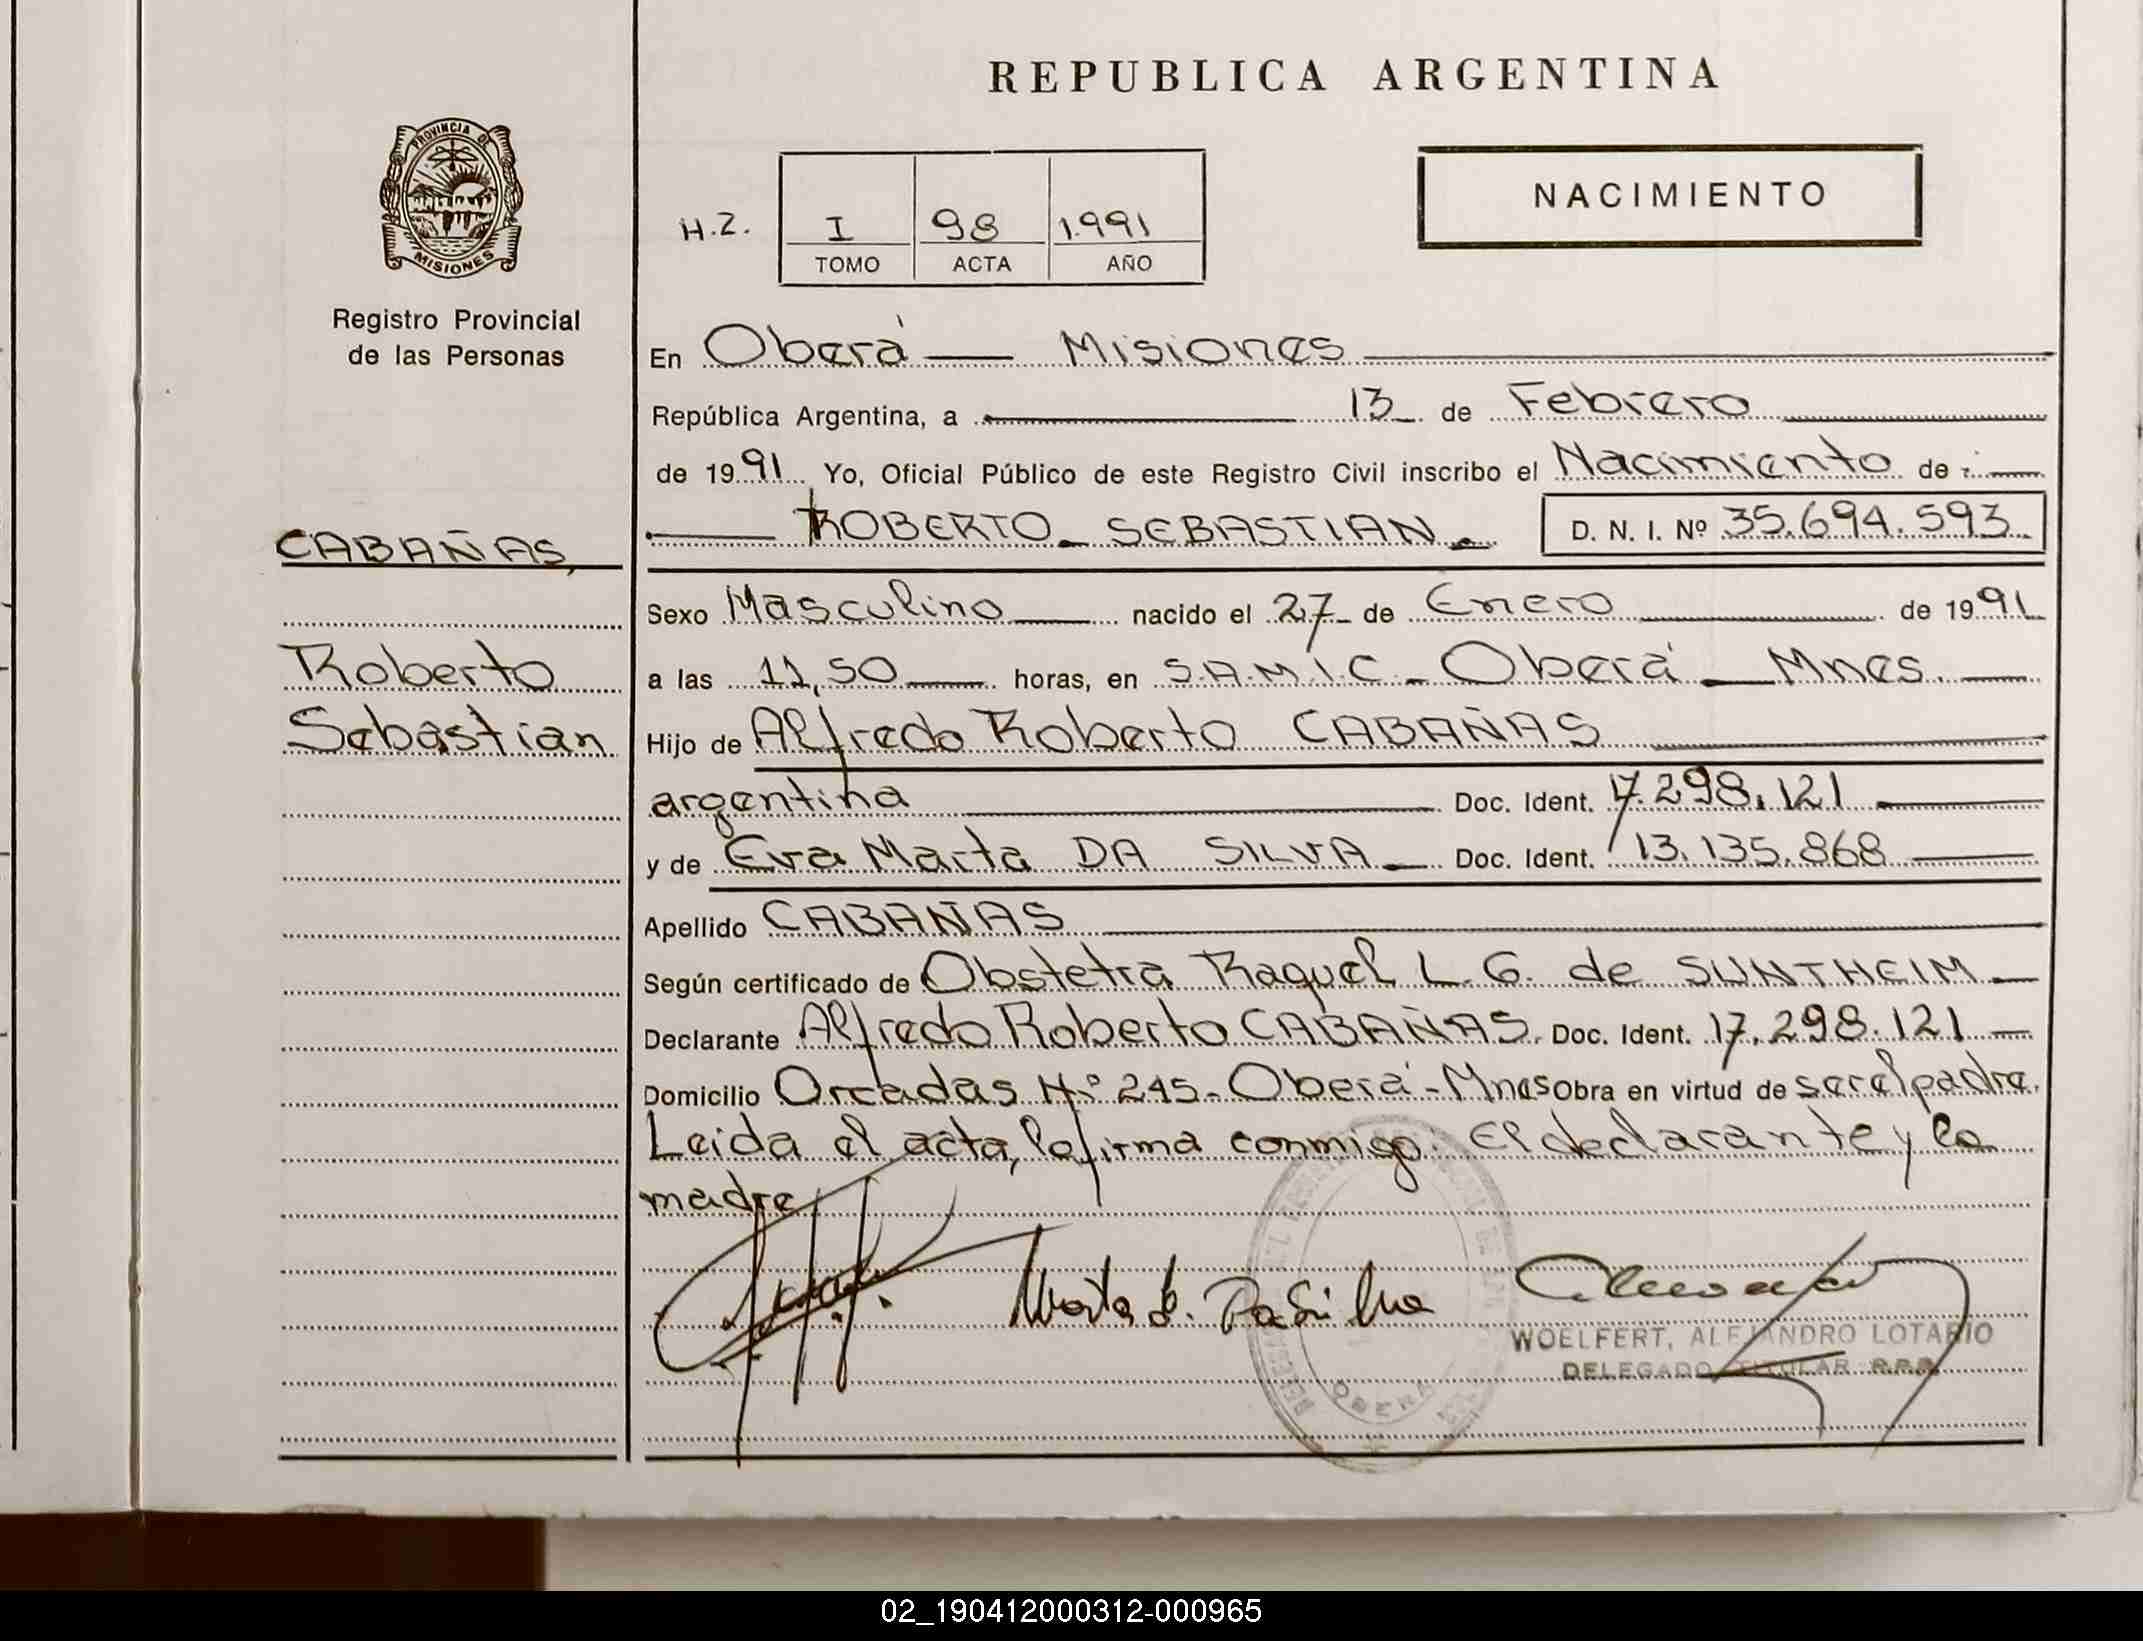 REPUBLICA ARGENTINA
PROVINCIA DE
MISIONES
Registro Provincial
de las Personas
NACIMIENTO
H.2. I 98 1.991
TOMO ACTA AÑO
En Oberá — Misiones
República Argentina, a 13 de Febrero
de 1991 Yo, Oficial Público de este Registro Civil inscribo el Nacimiento de :
ROBERTO SEBASTIAN. D. N. I. Nº 35.694.593
CABAÑAS,
Roberto
Sebastian
Sexo Masculino nacido el 27 de Enero de 1991
a las 11,50 horas, en S.A.M.I.C. - Oberá - Mnes.
Hijo de Alfredo Roberto CABAÑAS
argentina Doc. Ident. 17.298.121
y de Eva Marta DA SILVA Doc. Ident. 13.135.868
Apellido CABAÑAS
Según certificado de Obstetra Raquel L. G. de SUNTHEIM
Declarante Alfredo Roberto CABAÑAS. Doc. Ident. 17.298.121
Domicilio Orcadas Nº 245- Oberá - Mnes Obra en virtud de ser el padre.
Leida el acta, la firma conmigo: El declarante y la
madre
Marta E. Da Silva
WOELFERT, ALEJANDRO LOTARIO
DELEGADO TITULAR R.P.P.
OBERA
02_190412000312-000965